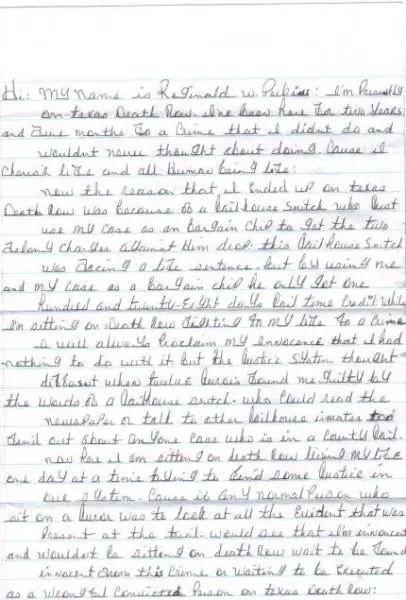 Hi: My Name is Reginald W. Perkins: I'm Presently
on texas Death Row. I've been here For two Years
and Five months Fo a Crime that I didnt do and
wouldnt never thought about doing Cause I
Cherish life and all Human being life:
now the reason that I Ended up on texas
Death Row was because of a Jailhouse Snitch who Just
use my Case as an Bargain Chip to get the two
Felony Charges against Him drop. this Jailhouse Snitch
was Facing a life sentence. but by using me
and my Case as a bargain chip he only got one
hundred and twenty-Eight days Jail time Credit while
I'm sitting on Death Row Fighting Fo my life Fo a Crime
I will always Proclaim my Innocence that I had
nothing to do with it but the Justice System thought
different when twelve Jurors Found me guilty by
the words of a Jailhouse snitch. who Could read the
newsPaper or talk to other Jailhouse inmates too
Find out about anyone Case who is in a County Jail.
now here I am sitting on death Row living my life
one day at a time trying to Find some Justice in
our System. Cause if any normal Person who
sit on a Juror was to look at all the Evident that was
Present at the trail. would see that I'm innocent
and wouldnt be sitting on death Row wait to be Found
innocent From this Crime or waiting to be Executed
as a Wrongful Convicted Person on texas Death Row: